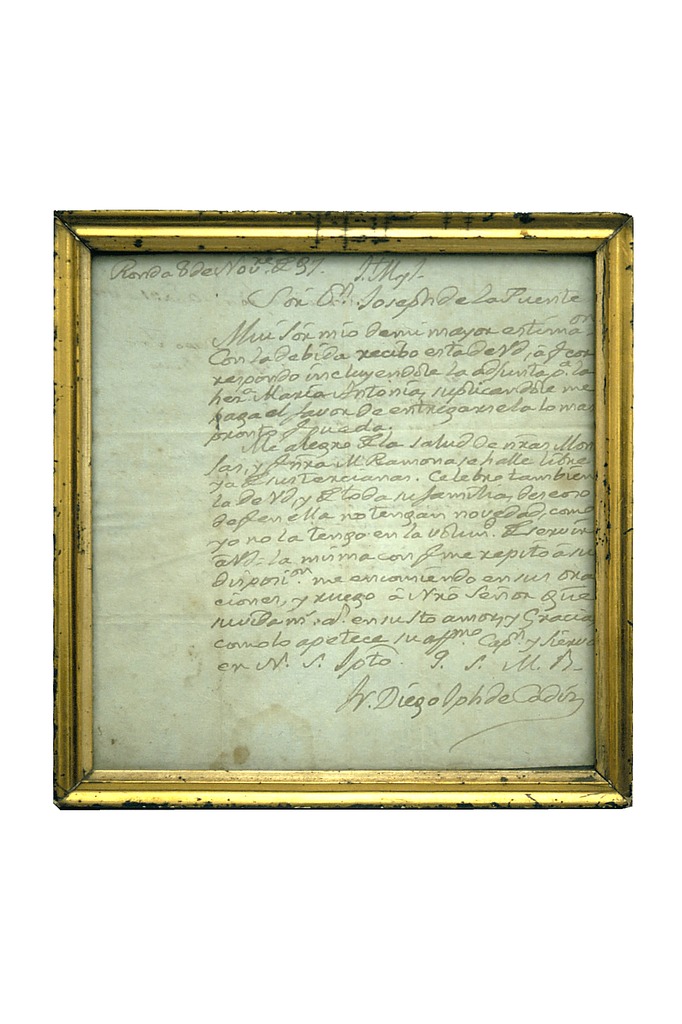 Ronda 8 de Nov.re de 97. J. M. J.
Sor. Dn. Joseph de la Puente
Mui Sor. mio de mi mayor estimaon
Con la debida recibo esta de Vd, à q cor
respondo incluyendole la adjunta pa. la
herna. Maria Antonia, suplicandole me
haga el favor de entregarsela lo mas
pronto q pueda.
Me alegro de la salud de nras Mon
jas, y q nra M. Ramona se halle libre
ya de sus tercianas. Celebro tambien
la de Vd, y de toda su familia, deseoso
de q en ella no tengan novedad, como
yo no la tengo en la volun.d de servir
à Vd. la misma con q me repito a su
disposion. me encomiendo en sus ora
ciones, y ruego à Nro Señor que
su vida m.s a.s en su sto amor, y Gracia
como lo apetece su affmo. Capn. y Siervo
en N. S. Jpto. Q. S. M. B.
Fr. Diego Jph de Cadiz